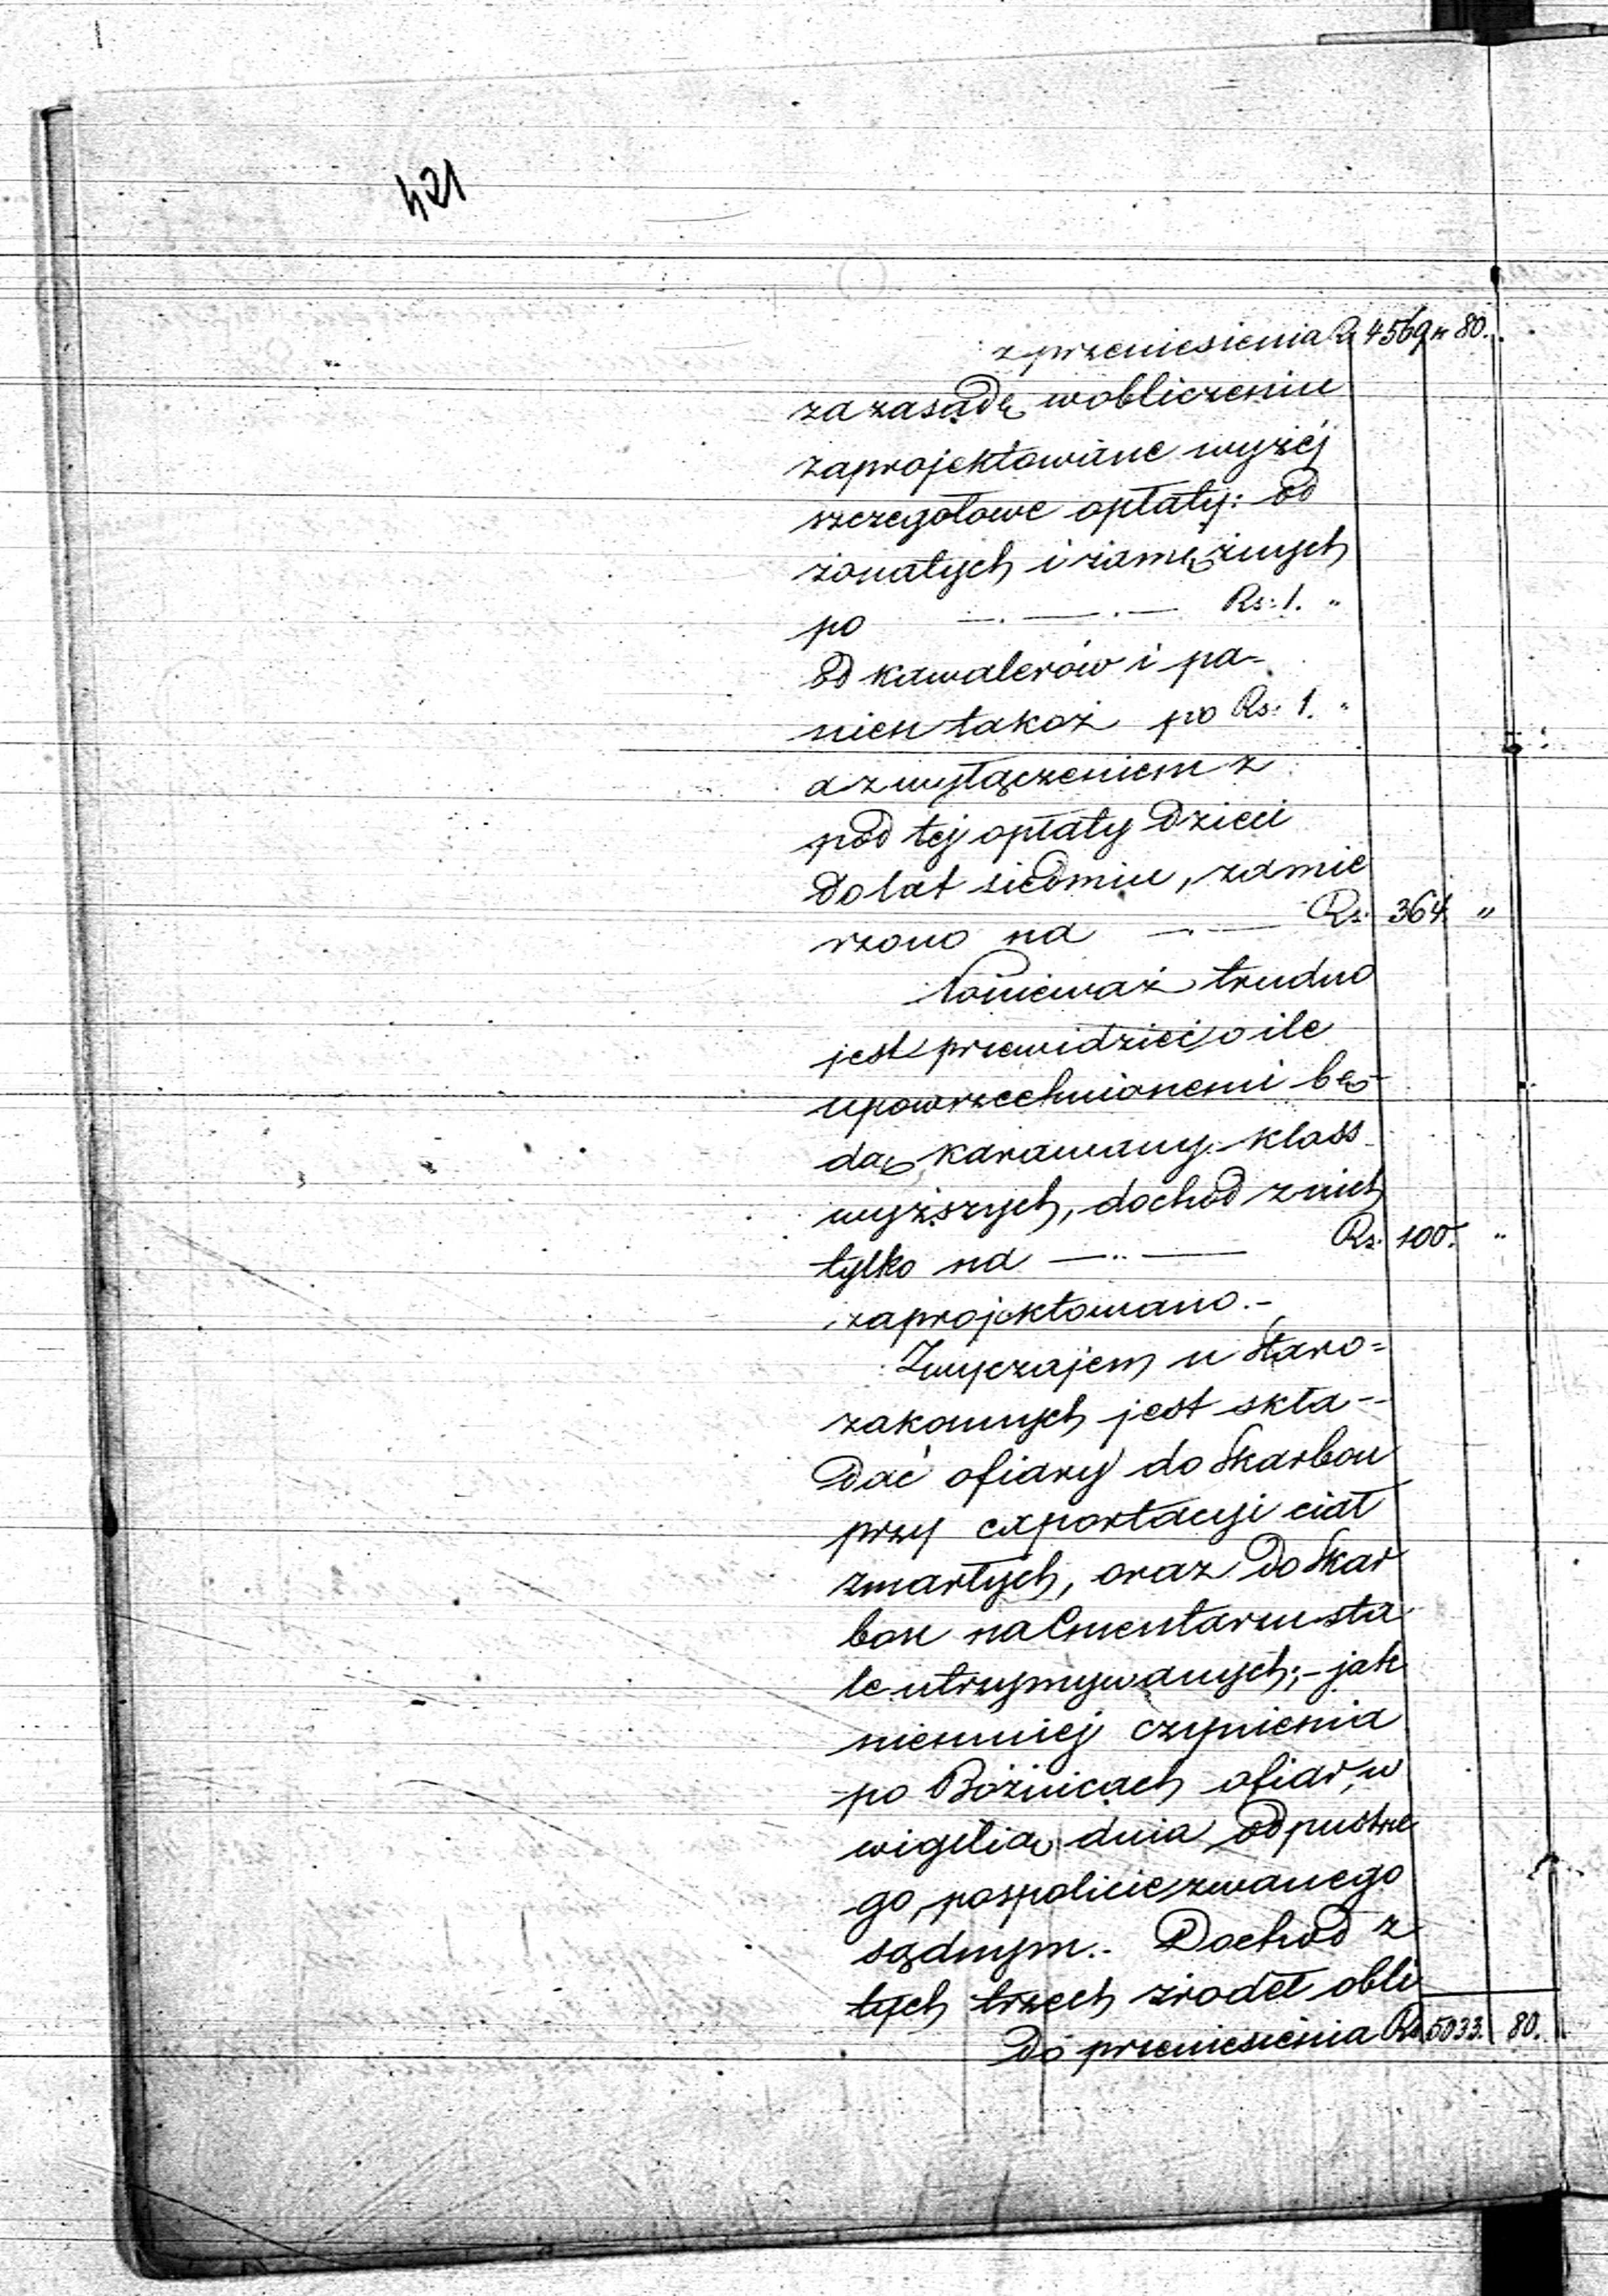 421
z przeniesienia Rs 4569 k 80.
za zasadę w obliczeniu
zaprojektowane wyżej
szczegołowe opłaty: od
żonatych i zamężnych
po —.—.— Rs: 1. "
Od kawalerów i pa-
nien takoż po Rs: 1. "
a z wyłączeniem z
pod tej opłaty dzieci
do lat siedmiu, zamie
rzono na —.— Rs: 364 "
Ponieważ trudno
jest przewidzieć o ile
upowszechnionemi bę-
dą karawany klass
wyższych, dochod z nich
tylko na —..— Rs: 100. "
zaprojektowano.-
Zwyczajem u Staro=
zakonnych jest skła-
dać ofiary do Skarbon
przy exportacyi ciał
zmarłych, oraz do Skar
bon na Cmentarzu sta
le utrzymywanych;- jak
niemniej czynienia
po Bóżnicach ofiar, w
wigilią dnia odpustne
go, pospolicie zwanego
sądnym.- Dochod z
tych trzech zrodeł obli
Do przeniesienia Rs 5033. 80.